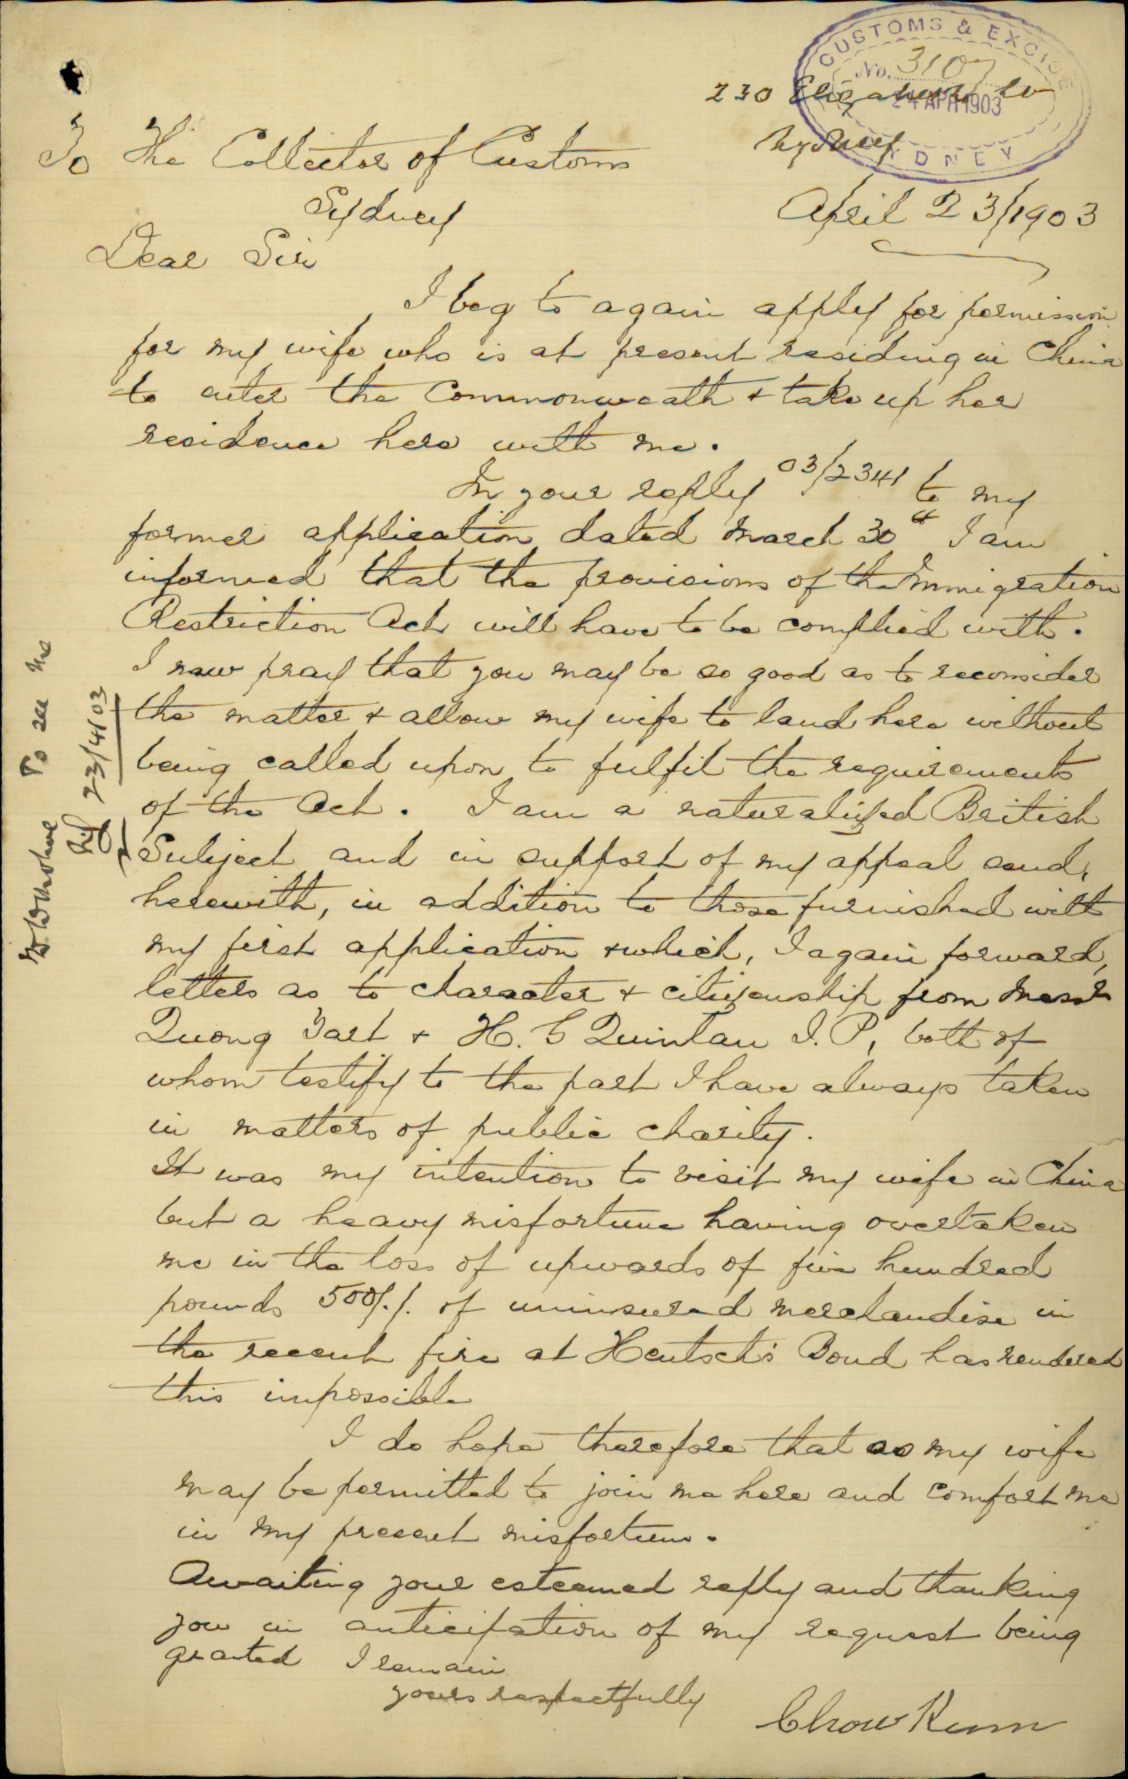 CUSTOMS & EXCISE
No. 3107
24 APR 1903
SYDNEY
230 Elizabeth St
Sydney
To The Collector of Customs
Sydney
April 23/1903
Dear Sir
I beg to again apply for permission
for my wife who is at present residing in China
to enter the Commonweath + take up her
residence here with me.
In your reply 03/2341 to my
former application dated March 30th I am
informed that the provisions of the Immigration
Restriction Act will have to be complied with.
I now pray that you may be so good as to reconsider
the matter + allow my wife to land here without
being called upon to fulfil the requirements
of the Act. I am a naturalized British
Subject and in support of my appeal send,
herewith, in addition to those furnished with
my first application + which, I again forward,
letters as to character + citizenship from Messrs
Quong Tart + H. G Quinlan J. P, both of
whom testify to the part I have always taken
in matters of public charity.
It was my intention to visit my wife in China
but a heavy misfortune having overtaken
me in the loss of upwards of five hundred
pounds 500/./. of uninsured merchandise in
the recent fire at Hentsch's Bond has rendered
this impossible
I do hope therefore that as my wife
may be permitted to join me here and comfort me
in my present misfortune.
Awaiting your esteemed reply and thanking
you in anticipation of my request being
granted I remain
yours respectfully
Chow Kum
To see me
23/4/03